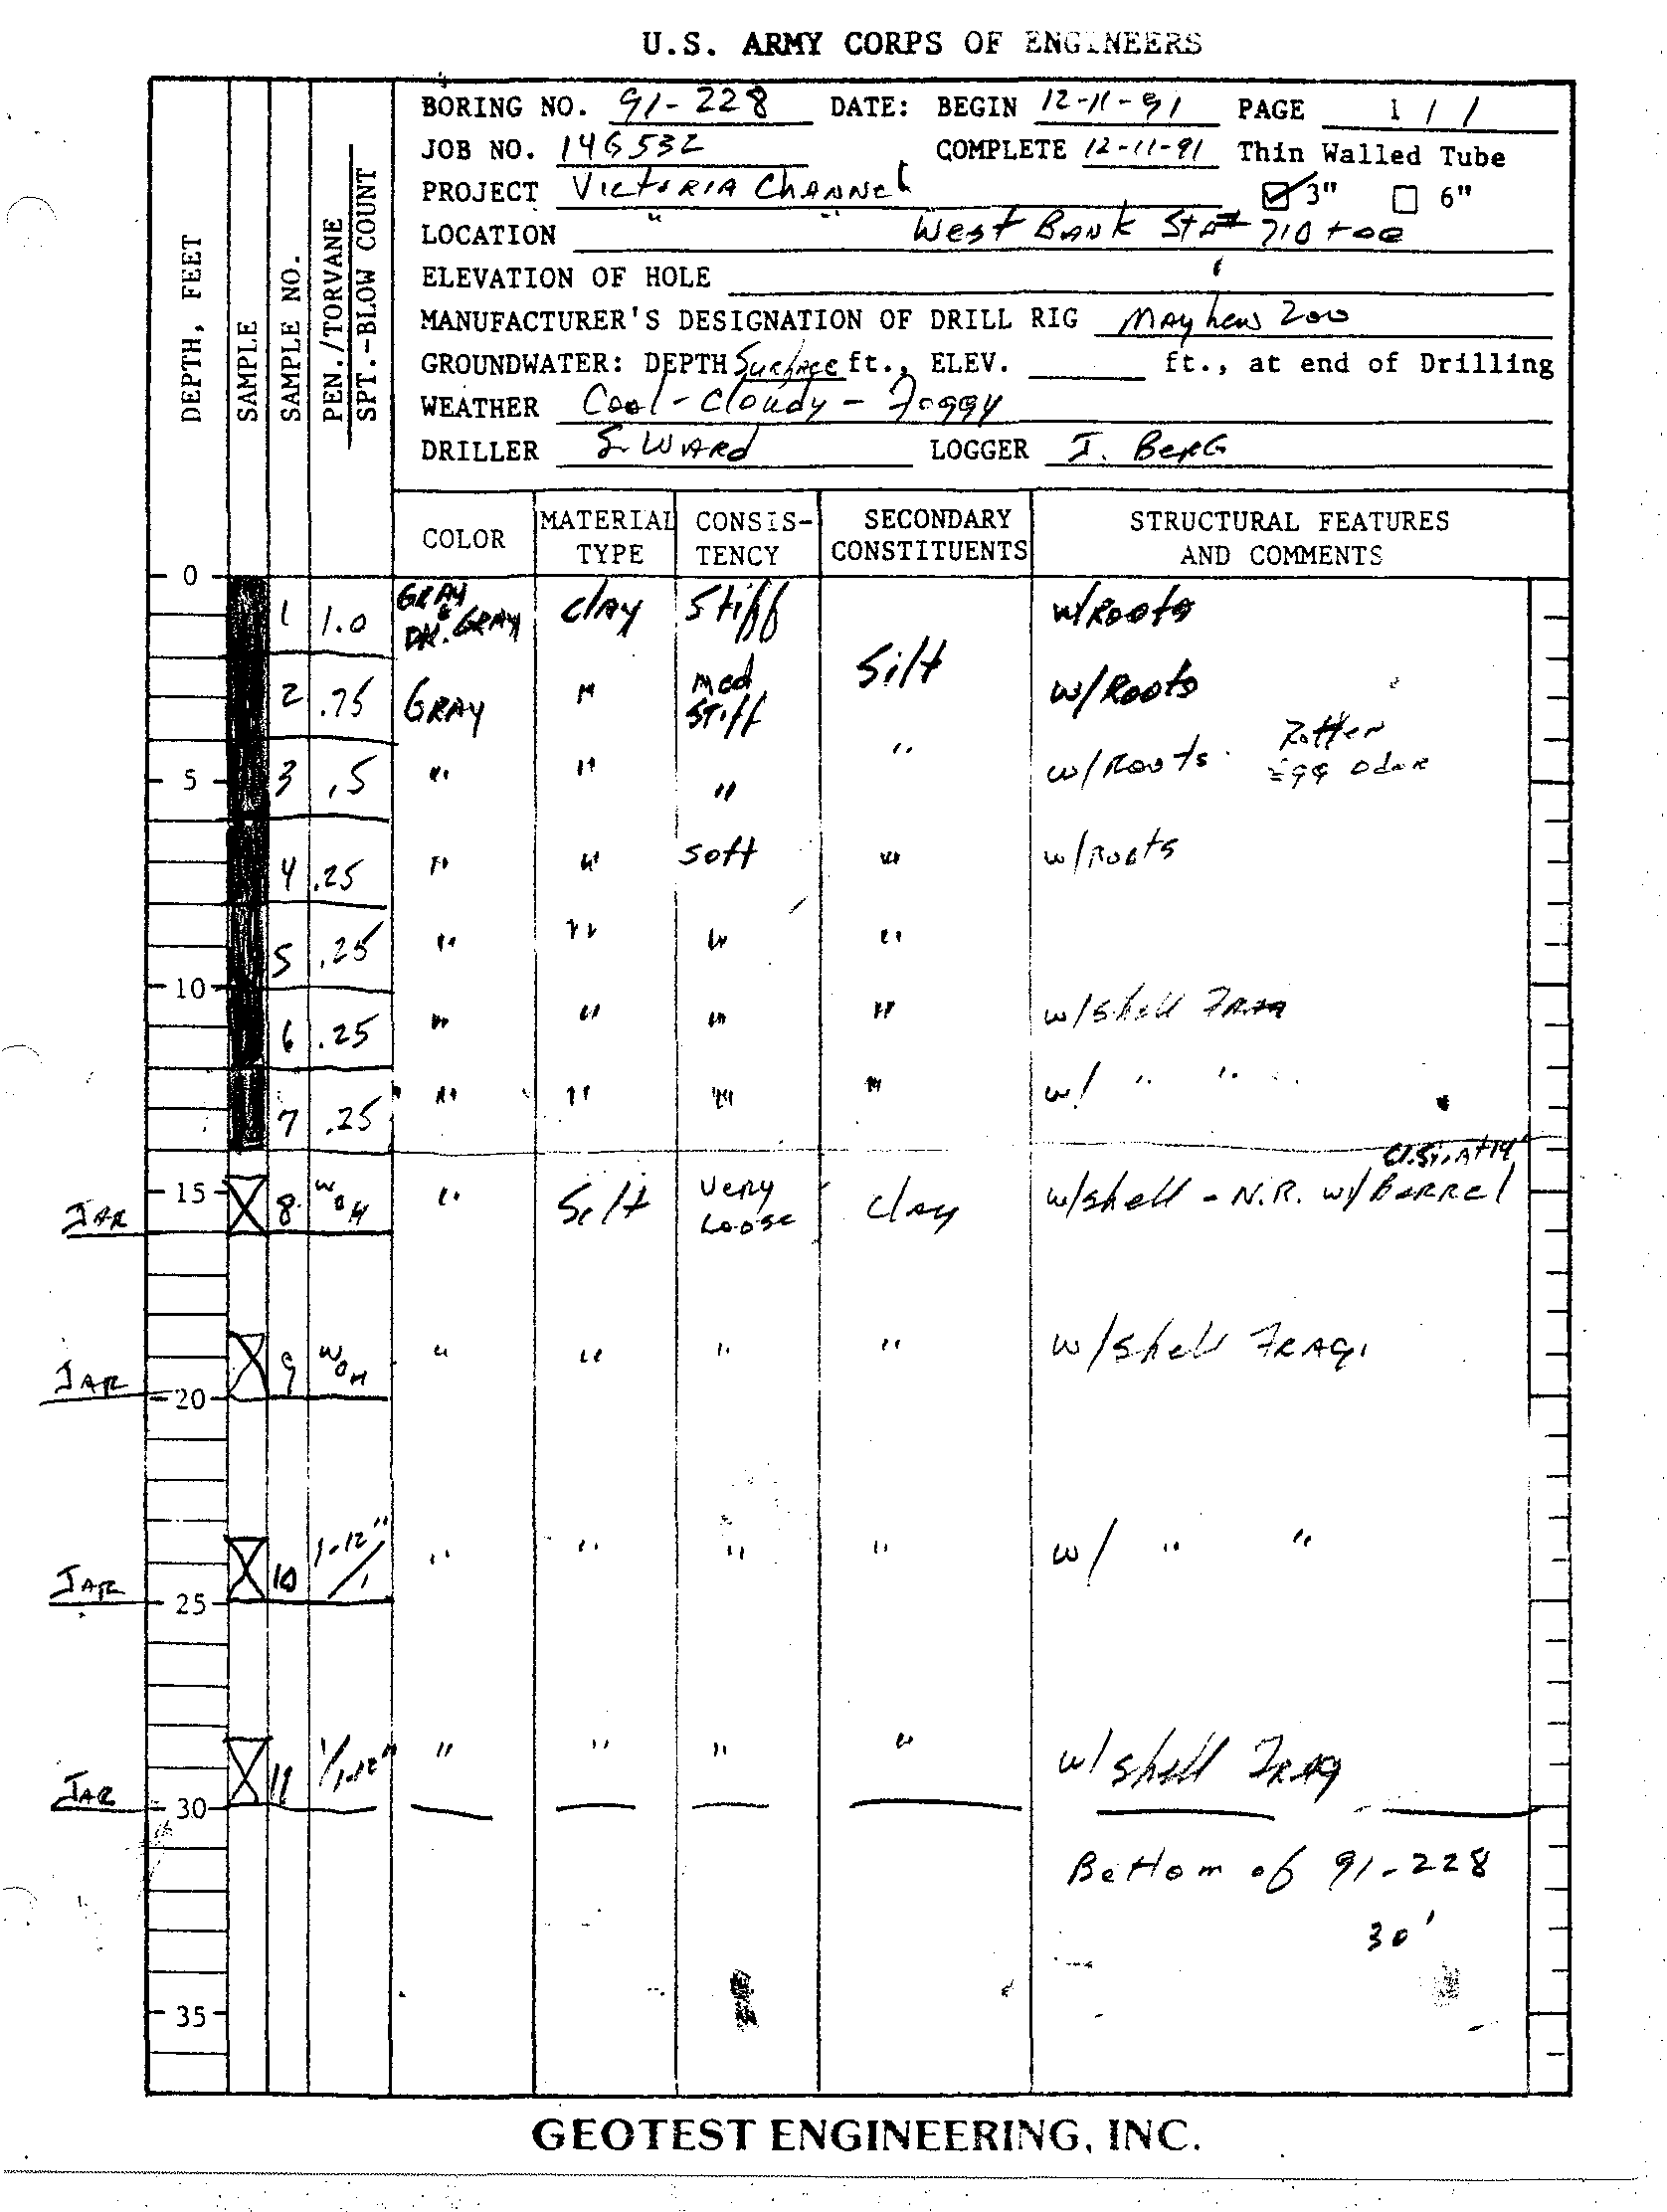 U.S. ARMY CORPS OF ENGINEERS
BORING NO. 91-228 DATE: BEGIN 12-11-91 PAGE 1 / 1
JOB NO. 14G532 COMPLETE 12-11-91 Thin Walled Tube
PROJECT Victoria Channel 3" 6"
LOCATION " " West Bank Sta# 710+00
ELEVATION OF HOLE
MANUFACTURER'S DESIGNATION OF DRILL RIG Mayhew 200
GROUNDWATER: DEPTH Surface ft., ELEV. ft., at end of Drilling
WEATHER Cool-Cloudy-Foggy
DRILLER S. WARD LOGGER J. BERG
DEPTH, FEET SAMPLE SAMPLE NO. PEN./TORVANE SPT.-BLOW COUNT
COLOR MATERIAL TYPE CONSIS-TENCY SECONDARY CONSTITUENTS STRUCTURAL FEATURES AND COMMENTS
0
1 1.0 GRAY & DK. GRAY clAy Stiff w/Roots
Silt
2 .75 GRAY " med stiff w/Roots
5 3 .5 " " " " w/Roots Rotten Egg Odor
4 .25 " " Soft " w/Roots
5 .25 " " " "
10
6 .25 " " " " w/shell FRAG
7 .25 " " " " w/ " "
Cl.Si. At 14'
JAR 15 8 WOH " Silt Very Loose Clay w/shell - N.R. w/Barrel
JAR 20 9 WOH " " " " w/shell FRAG.
JAR 25 10 1-12"/1 " " " " w/ " "
JAR 30 11 1/1-12" " " " " w/shell FRAG
Bottom of 91-228
30'
35
GEOTEST ENGINEERING, INC.